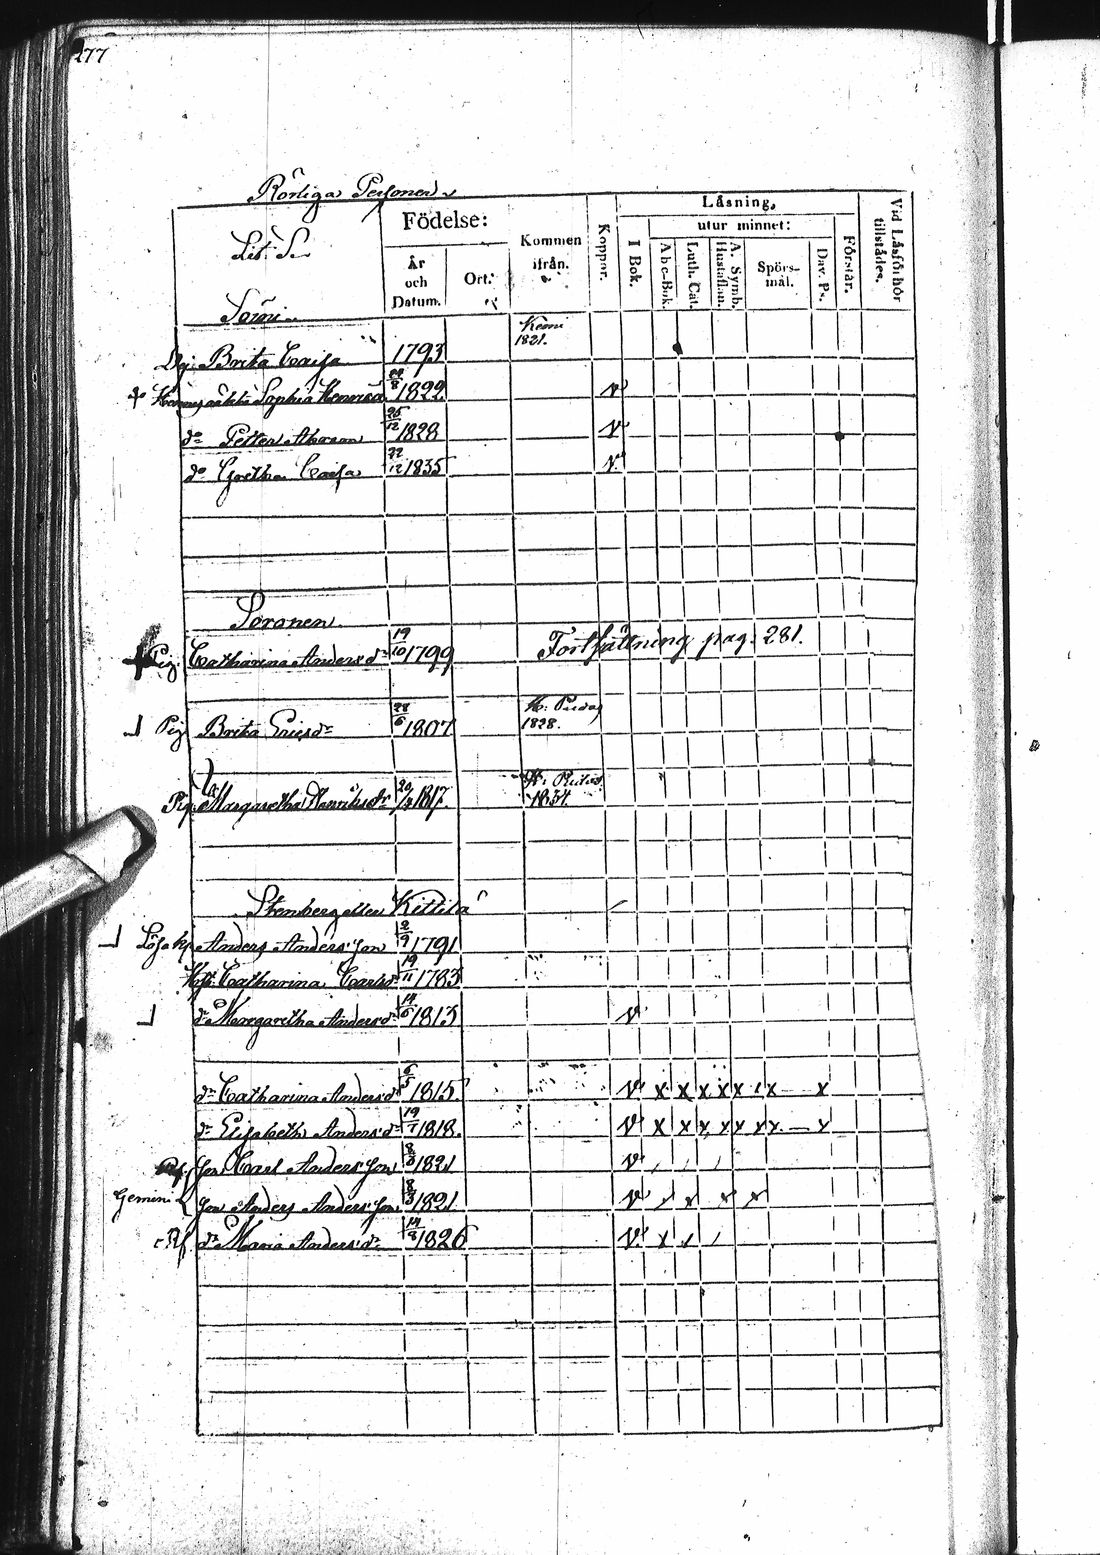 277
Rörliga Personer
Litt. S.
Födelse:
År och Datum.
Ort.
Kommen ifrån.
Koppor.
Läsning,
I Bok.
utur minnet:
Abc-Bok.
Luth. Cat.
A. Symb. Hustaflan.
Spörsmål.
Dav. Ps.
Förstår.
Vid Läsförhör tillstädes.
Sorri
Kemi 1821.
Brita Caisa 1793
Sophia 22/8 1822 v
do Petter 25/12 1828 v
do Gretha Caisa 22/12 1835 v
Soranen
Pig. Catharina Andersdr 19/10 1799 Fortsättning pag. 281.
Pig Brita Ericsdr 28/6 1807 1828.
Pig. Margaretha Henriksdr 20/7 1817. 1834.
Stenberg eller Kittilä
Anders Andersson 2/9 1791
Catharina Carlsdr 19/11 1783
dr Margaretha Andersdr 14/6 1813 v
dr Catharina Andersdr 6/5 1815 v x x x x x x x — x
dr Elisabeth Andersdr 19/7 1818. v x x x x x x x — x
Son Carl Andersson 8/3 1821 v / / /
Gemini Son Anders Andersson 8/3 1821 v x x x x
dr Maria Andersdr 14/8 1826 v x x /